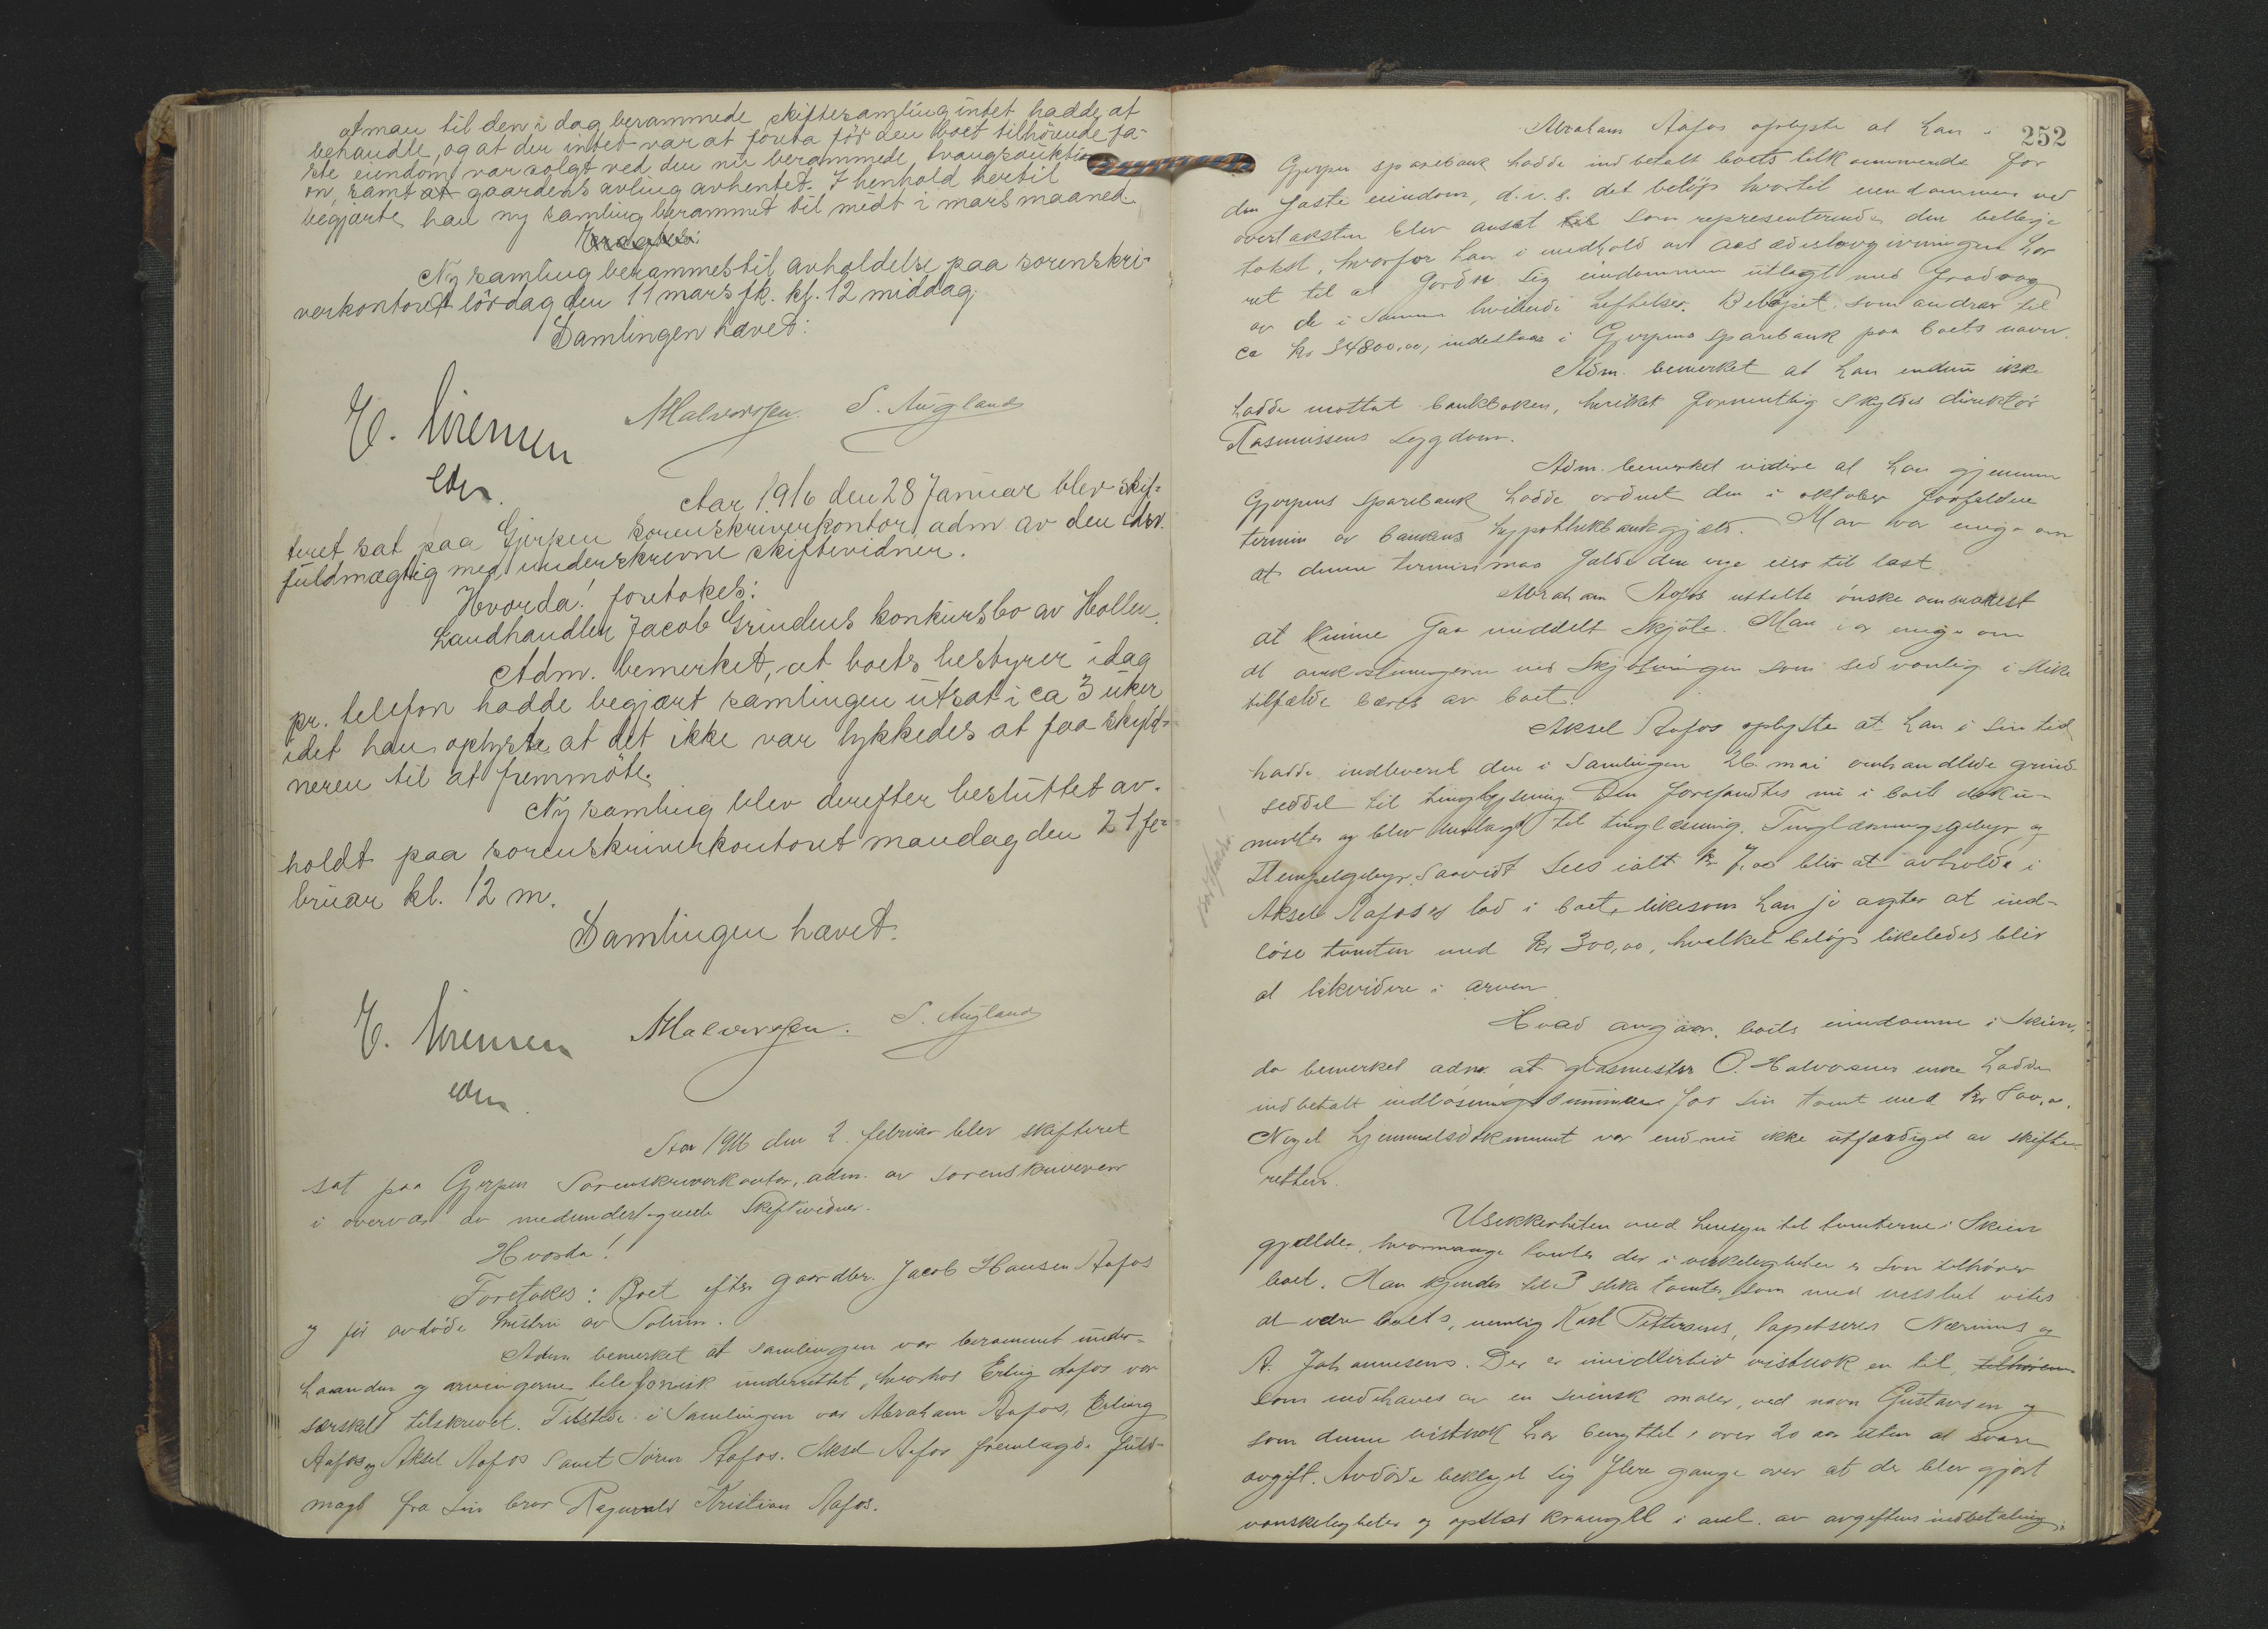 at man til den i dag berammede skiftesamling intet hadde at
behandle, og at der intet var at foreta før den boet tilhørende fa-
ste eiendom var solgt ved den nu berammede tvangsauktion
on, samt at gaardens avling avhentet. I henhold hertil
begjærte han ny samling berammet til midt i mars maaned.
Ny samling berammes til avholdelse paa sorenskri-
verkontoret lørdag den 11 mars fk. kl. 12 middag.
Samlingen hævet:
MHalvorsen. S. Augland
edsv.
Aar 1916 den 28 Januar blev skif-
teret sat paa Gjerpen sorenskriverkontor, adm av den edsv.
fuldmægtig med underskrevne skiftevidner.
Hvorda! foretokes:
Landhandler Jacob Grindens konkursbo av Hollen.
Adm. bemerket, at boets bestyrer idag
pr. telefon hadde begjært samlingen utsat i ca 3 uker
idet han oplyste at det ikke var lykkedes at faa skyld-
neren til at fremmöte.
Ny samling blev derefter besluttet av-
holdt paa sorenskriverkontoret mandag den 21 fe-
bruar kl. 12 m.
Samlingen hævet.
MHalvorsen. S. Augland
edsv.
Aar 1916 den 2. februar blev skifteret
sat paa Gjerpen Sorenskriverkontor, adm. av sorenskriveren
i overvær av medundertegnede Skiftevidner.
Hvorda!
Foretokes: Boet efter gaardbr. Jacob Hansen Aafos
og før avdøde hustru av Solum.
Adm bemerket at samlingen var berammet under-
haanden og arvingerne telefonisk underrettet, hvorhos Erling Aafos var
særskilt tilskrevet. Tilstede i Samlingen var Abraham Aafos, Erling
Aafos og Aksel Aafos samt Søren Aafos. Aksel Aafos fremlagde fuld-
magt fra sin bror Ragnvald Kristian Aafos.
252
Abraham Aafos oplyste at han i
Gjerpen sparebank hadde indbetalt boets tilkommende for
den faste eiendom, d.v.s. det beløp hvortil eiendommen ved
overtaksten blev ansat til som representerende den billige
takst, hvorfor han i medhold av aasædeslovgivningen har
ret til at fordre sig eiendommen utlagt med fradrag
av de i samme hvilende heftelser. Beløpet som andrar til
ca kr 34800,00, indestaar i Gjerpens Sparebank paa boets navn.
Adm. bemerket at han endnu ikke
hadde mottat bankboken, hvilket formentlig skyldes direktør
Rasmussens sygdom.
Adm. bemerket videre at han gjennem
Gjerpens sparebank hadde ordnet den i oktober forfaldne
termin av bankens hypothekbankgjæld. Man var enige om
at denne termin maa falde den nye eier til last.
Abraham Aafos uttalte ønske om snarest
at kunne faa meddelt skjøte. Man var enige om
at omkostningerne ved Skjøtningen som sedvanlig i slike
tilfælde bæres av boet.
Aksel Aafos oplyste at han i sin tid
hadde indleveret den i Samlingen 26. mai omhandlede grund-
seddel til tinglysning. Den forefandtes nu i boets doku-
menter og blev utlagt til tinglæsning. Tinglæsningsgebyr og
Stempelgebyr, saavidt sees ialt kr 7,00 blir at avholde i
Aksel Aafoses lod i boet, likesom han jo agter at ind-
løse tomten med kr 300,00, hvilket beløp likeledes blir
at likvidere i arven.
Hvad angaar boets eiendomme i Skien,
da bemerket adm. at glasmester O. Halvorsens enke hadde
indbetalt indløsningssummen for sin tomt med kr
Noget hjemmelsdokument var endnu ikke utfærdiget av skifte-
retten.
Usikkerheten med hensyn til tomterne i Skien
gjælder, hvormange tomter der i virkeligheten er som tilhører
boet. Man kjender til 3 slike tomter som med visshet vites
at være boets, nemlig Karl Pettersens, tapetserer Nærums og
A. Johannesens. Der er imidlertid vistnok en til,
som indehaves av en svensk maler, ved navn Gustavsen og
som denne vistnok har benyttet i over 20 aar uten at svare
avgift. Avdøde beklaget sig flere gange over at der blev gjort
vanskeligheter og opstod krangel i anl. av avgiftens indbetaling